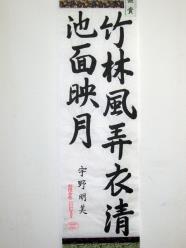 竹林風弄衣清
池面映月
宇野明美